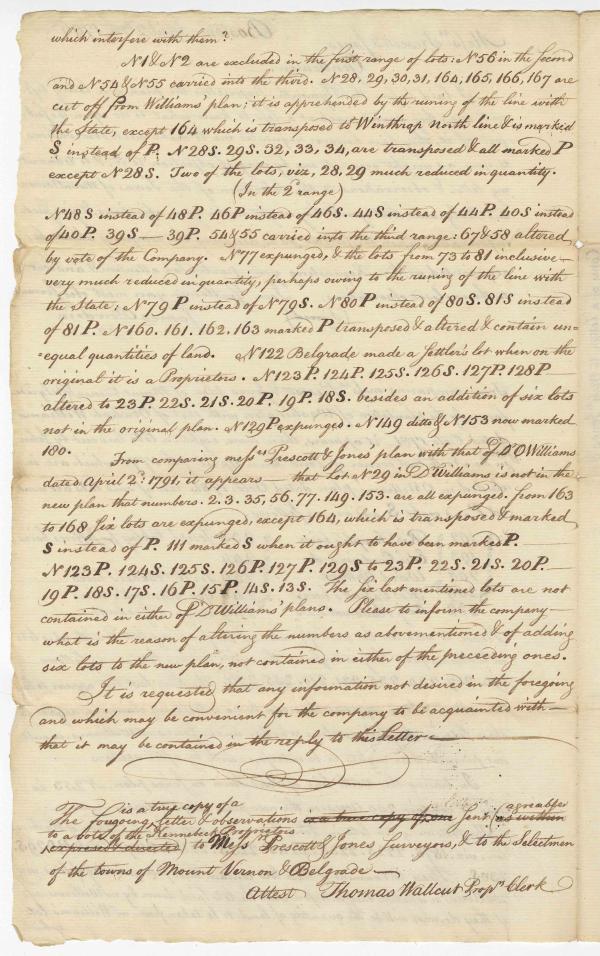 which interfere with them?
N1 & N2 are excluded in the first range of lots: N56 in the second
and N54 & N55 carried into the third. N28, 29, 30, 31, 164, 165, 166, 167 are
cut off from Williams' plan; it is apprehended by the runing of the line with
the State, except 164 which is transposed to Winthrop north line & is markid
S instead of P. N28S. 29S. 32, 33, 34, are transposed & all marked P
except N28S. Two of the lots, viz, 28, 29 much reduced in quantity.
(In the 2d range)
N48S instead of 48P. 46P instead of 46S. 44S instead of 44P. 40S instead
of 40P. 39S — 39P. 54 & 55 carried into the third range: 67 & 58 altered
by vote of the Company. N77 expunged, & the lots from 73 to 81 inclusive —
very much reduced in quantity, perhaps owing to the runing of the line with
the State; N79P instead of N79S. N80P instead of 80S. 81S instead
of 81P. N160. 161. 162. 163 marked P transposed & altered & contain un=
=equal quantities of land. N122 Belgrade made a Settler's lot when on the
original it is a Proprietors. N123P. 124P. 125S. 126S. 127P. 128P —
altered to 23P. 22S. 21S. 20P. 19P. 18S. besides an addition of six lots
not in the original plan. N129P expunged. N149 ditto & N153 now marked
180.
From comparing messrs Prescott & Jones' plan with that of Dr O Williams
dated April 2d. 1791, it appears — that Lot N29 in D Williams is not in the
new plan that numbers. 2. 3. 35, 56. 77. 149. 153. are all expunged. from 163
to 168 six lots are expunged, except 164, which is transposed & marked
S instead of P. 111 marked S when it ought to have been marked P.
N123P. 124S. 125S. 126P. 127P. 129S to 23P. 22S. 21S. 20P. —
19P. 18S. 17S. 16P. 15P. 14S. 13S. The Six last mentioned lots are not
contained in either of D Williams' plans. Please to inform the company —
what is the reason of altering the numbers as abovementioned & of adding
six lots to the new plan, not contained in either of the preceeding ones.
It is requested that any information not desired in the foregoing
and which may be convenient for the company to be acquainted with —
that it may be contained in the reply to this Letter —
is a true copy of a agreeable
The foregoing Letter & observations is a true copy of one sent (as within
to a vote of the Kennebeck Proprietors
expressed & directed) to Messrs Prescott & Jones Surveyors, & to the Selectmen
of the towns of Mount Vernon & Belgrade —
Attest Thomas Wallcut Proprs Clerk